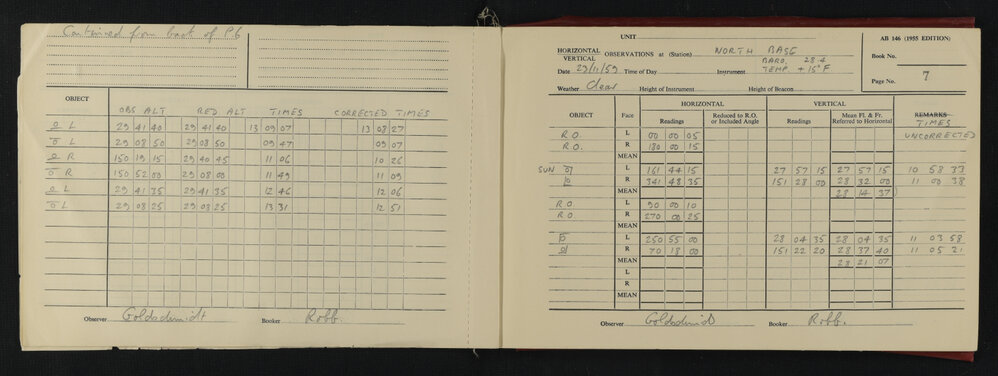 Continued from back of P6
OBJECT OBS ALT RED ALT TIMES CORRECTED TIMES
L 29 41 40 29 41 40 13 09 07 13 08 27
L 29 08 50 29 08 50 09 47 09 07
R 150 19 15 29 40 45 11 06 10 26
R 150 52 00 29 08 00 11 49 11 09
L 29 41 35 29 41 35 12 46 12 06
L 29 08 25 29 08 25 13 31 12 51
Observer Goldschmidt Booker Robb.
UNIT
AB 146 (1955 EDITION)
HORIZONTAL
VERTICAL
OBSERVATIONS at (Station) NORTH BASE
Book No.
BARO. 28.4
Date 29/11/59 Time of Day Instrument TEMP. +15°F
Page No. 7
Weather Clear Height of Instrument Height of Beacon
OBJECT Face HORIZONTAL VERTICAL REMARKS
Readings Reduced to R.O. or Included Angle Readings Mean Fl. & Fr. Referred to Horizontal TIMES
RO L 00 00 05 UNCORRECTED
R.O. R 180 00 15
MEAN
SUN L 161 44 15 27 57 15 27 57 15 10 58 33
R 341 48 35 151 28 00 28 32 00 11 00 38
MEAN 28 14 37
RO L 90 00 10
RO R 270 00 25
MEAN
L 250 55 00 28 04 35 28 04 35 11 03 58
R 70 18 00 151 22 20 28 37 40 11 05 21
MEAN 28 21 07
L
R
MEAN
Observer Goldschmidt Booker Robb.